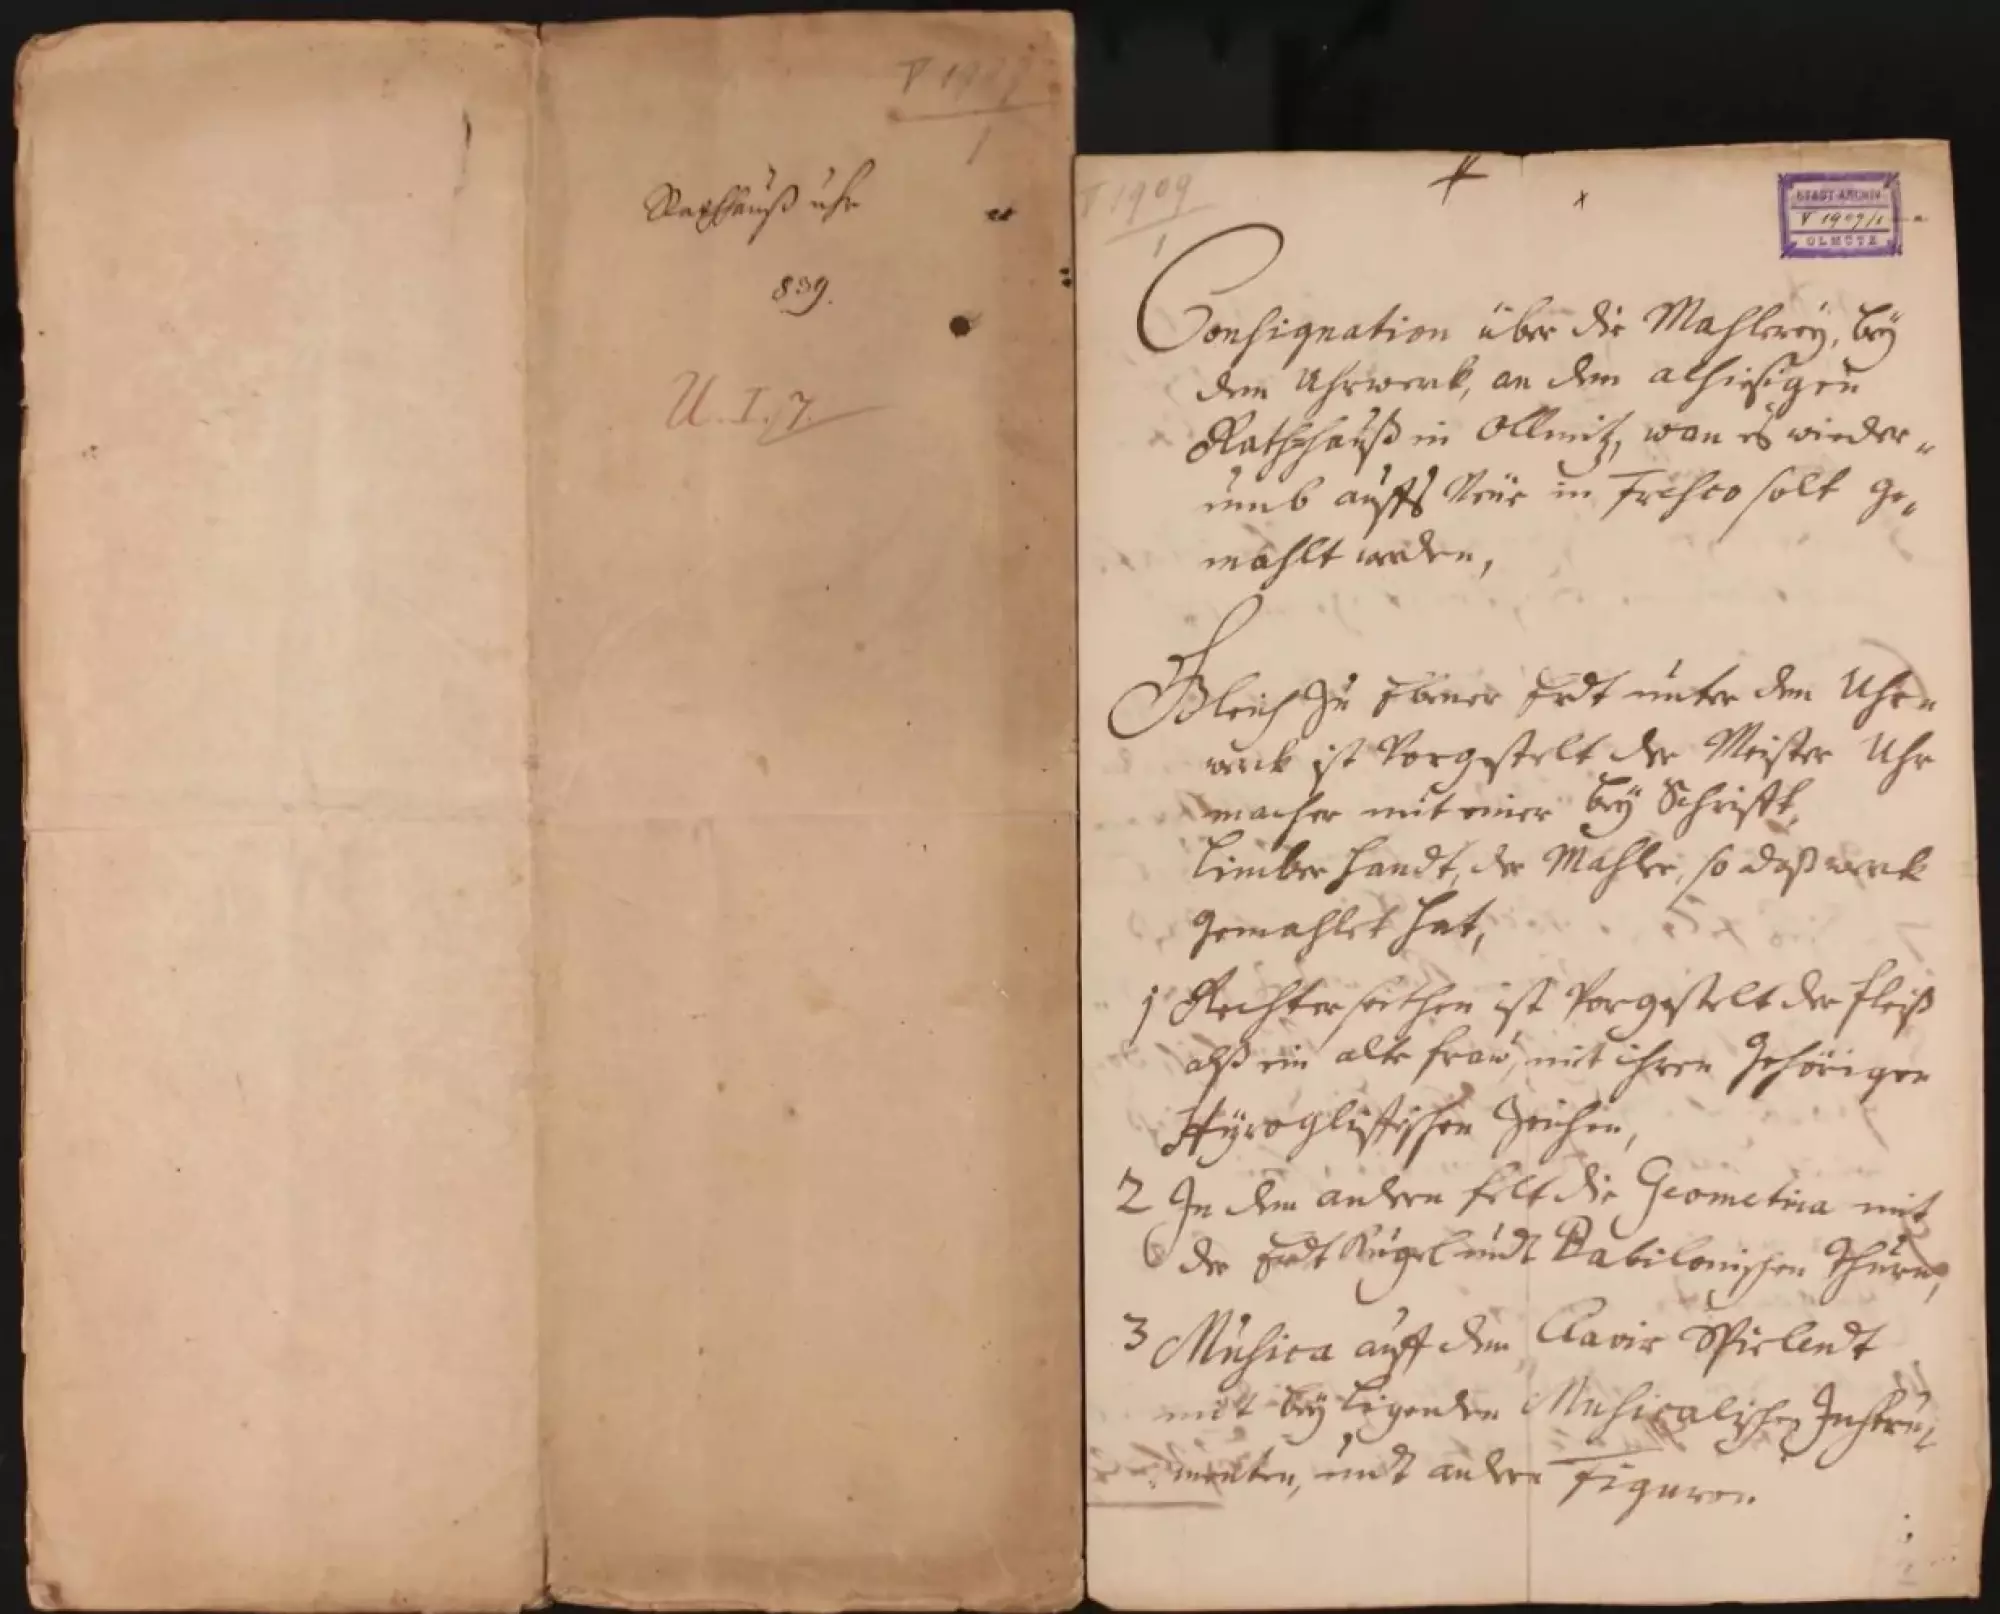 V 1909
1
Rathhauß uhr
839.
U. I. 7.
V 1909
1
STADT-ARCHIV
V 1909/1
OLMÜTZ
Consignation über die Mahlereÿ, beÿ
dem Uhrwerk, an dem alhiesigen
Rathhauß in Ollmitz, wan es wieder-
umb auffs Neüe in Frescо solt ge-
mahlt werden,
Gleich zu Ebener Erdt unter dem Uhr-
werk ist Vorgestelt der Meister Uhr
macher mit einer beÿ Schrifft,
Limber Handt, der Mahler, so daß werk
gemahlet hat,
1 Rechter seithen ist Vorgestelt der fleiß
alß ein alte frau, mit ihren gehörigen
Hÿroglifischen Zeichen,
2 In dem andern felt die Geometria mit
der Erdt Kugel undt Babilonischen Thurn,
3 Musica auff dem Clavir Spielendt
mit beÿ ligenden Musicalischen Instru-
menten, undt andere Figuren